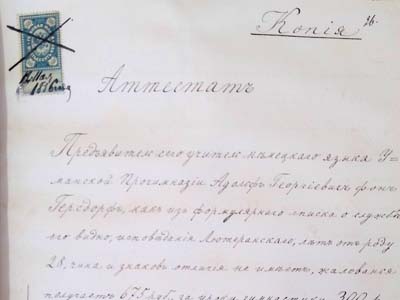 Копія
12 Мая
Аттестатъ
Предъявитель сего учитель нѣмецкаго языка У-
манской Прогимназіи Адольфъ Георгіевичъ фонъ
Герсдорфъ, какъ изъ формулярнаго списка о службѣ
его видно, исповѣданія Лютеранскаго, лѣтъ отъ роду
28, чина и знаковъ отличія не имѣетъ, жалованья
получаетъ 675 руб. за уроки гимнастики 300 р.